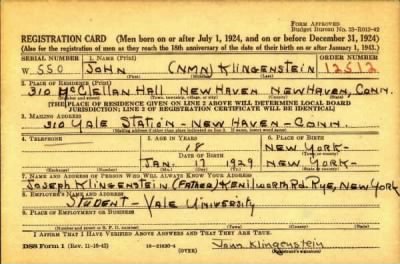 Form Approved
Budget Bureau No. 33-R012-42
REGISTRATION CARD (Men born on or after July 1, 1924, and on or before December 31, 1924)
(Also for the registration of men as they reach the 18th anniversary of the date of their birth on or after January 1, 1943.)
SERIAL NUMBER 1. NAME (Print) ORDER NUMBER
W 550 JOHN (NMN) KLINGENSTEIN 12512
(First) (Middle) (Last)
2. PLACE OF RESIDENCE (Print)
310 McCLELLAN HALL NEW HAVEN NEW HAVEN, CONN.
(Number and street) (Town, township, village, or city) (County) (State)
[THE PLACE OF RESIDENCE GIVEN ON LINE 2 ABOVE WILL DETERMINE LOCAL BOARD
JURISDICTION; LINE 2 OF REGISTRATION CERTIFICATE WILL BE IDENTICAL]
3. MAILING ADDRESS
310 YALE STATION - NEW HAVEN - CONN.
[Mailing address if other than place indicated on line 2. If same, insert word same]
4. TELEPHONE 5. AGE IN YEARS 6. PLACE OF BIRTH
18 NEW YORK -
DATE OF BIRTH (Town or county)
JAN. 17 1929 NEW YORK -
(Exchange) (Number) (Mo.) (Day) (Yr.) (State or country)
7. NAME AND ADDRESS OF PERSON WHO WILL ALWAYS KNOW YOUR ADDRESS
JOSEPH KLINGENSTEIN (FATHER) KENILWORTH RD. RYE, NEW YORK
8. EMPLOYER'S NAME AND ADDRESS
STUDENT - YALE UNIVERSITY
9. PLACE OF EMPLOYMENT OR BUSINESS
(Number and street or R. F. D. number) (Town) (County) (State)
I AFFIRM THAT I HAVE VERIFIED ABOVE ANSWERS AND THAT THEY ARE TRUE.
DSS Form 1 (Rev. 11-16-42) (OVER) John Klingenstein
(Registrant's signature)